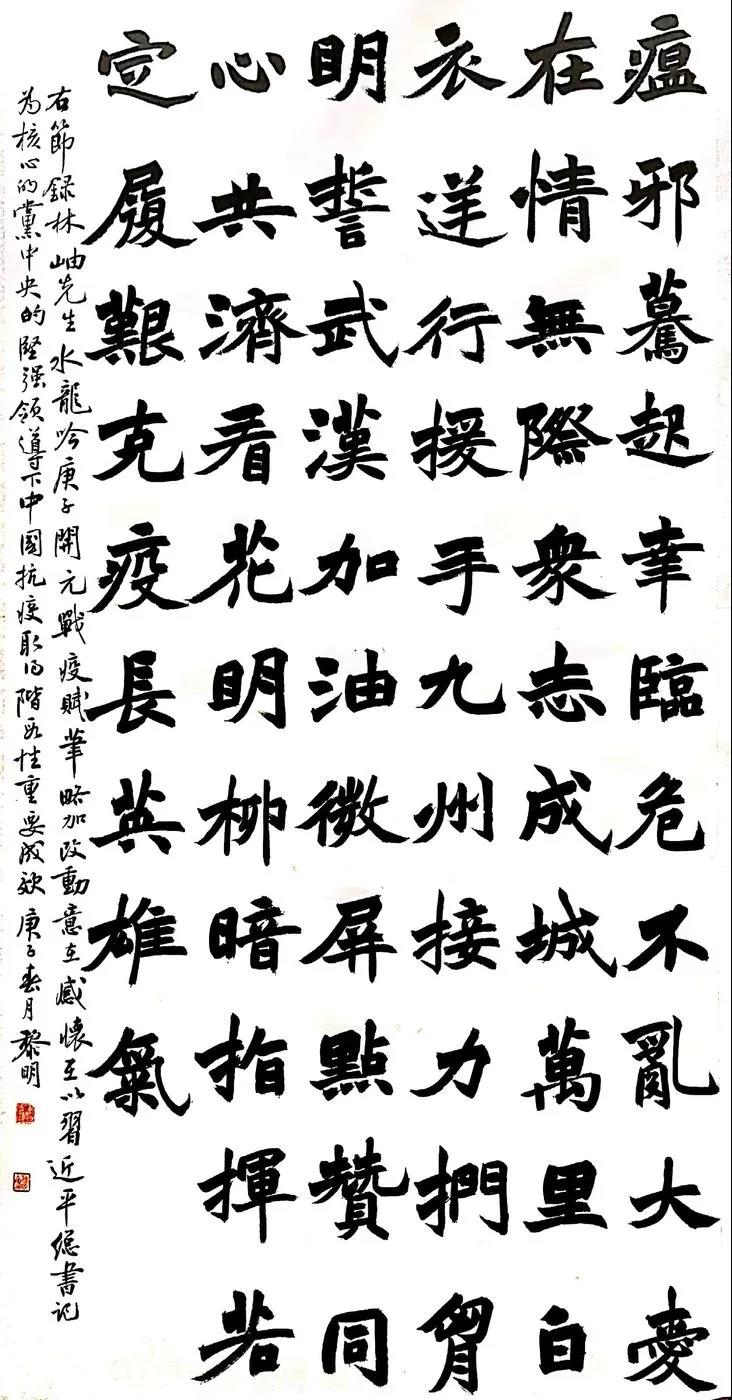 瘟邪驀起幸臨危不亂大愛
在情無際衆志成城萬里白
衣逆行援手九州接力捫胷
明誓武漢加油微屏點贊同
心共濟看花明柳暗指揮若
定履艱克疫長英雄氣
右節録林岫先生水龍吟庚子開元戰疫賦筆略加改動意在感懷在以習近平總書记
为核心的黨中央的堅强領導下中國抗疫取得階段性重要成效庚子春月黎明